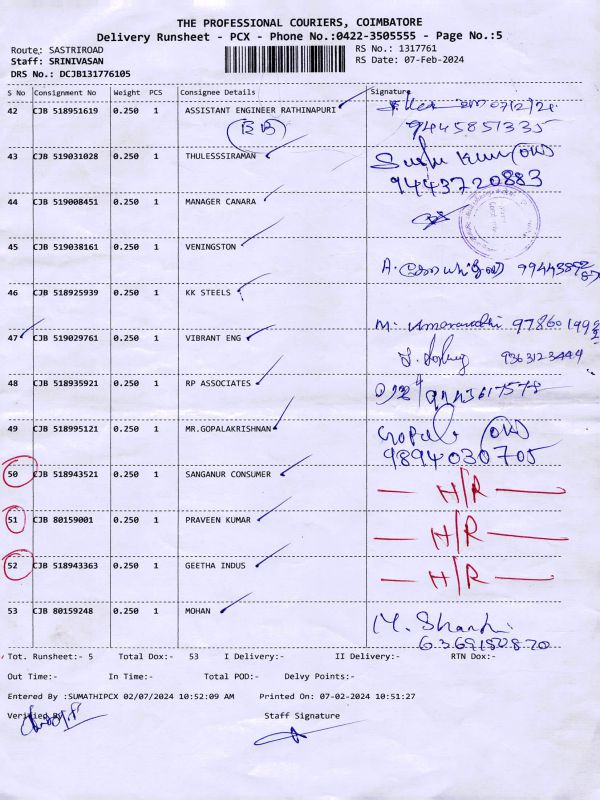 THE PROFESSIONAL COURIERS, COIMBATORE
Delivery Runsheet - PCX - Phone No.:0422-3505555 - Page No.:5
Route: SASTRIROAD
RS No.: 1317761
Staff: SRINIVASAN
RS Date: 07-Feb-2024
DRS No.: DCJB131776105
S No Consignment No Weight PCS Consignee Details Signature
42 CJB 518951619 0.250 1 ASSISTANT ENGINEER RATHINAPURI
9445851335
43 CJB 519031028 0.250 1 THULESSSIRAMAN
9443720883
44 CJB 519008451 0.250 1 MANAGER CANARA
45 CJB 519038161 0.250 1 VENINGSTON
46 CJB 518925939 0.250 1 KK STEELS
47 CJB 519029761 0.250 1 VIBRANT ENG
9363123444
48 CJB 518935921 0.250 1 RP ASSOCIATES
49 CJB 518995121 0.250 1 MR.GOPALAKRISHNAN
9894030705
50 CJB 518943521 0.250 1 SANGANUR CONSUMER H/R
51 CJB 80159001 0.250 1 PRAVEEN KUMAR H/R
52 CJB 518943363 0.250 1 GEETHA INDUS H/R
53 CJB 80159248 0.250 1 MOHAN
Tot. Runsheet:- 5 Total Dox:- 53 I Delivery:- II Delivery:- RTN Dox:-
Out Time:- In Time:- Total POD:- Delvy Points:-
Entered By :SUMATHIPCX 02/07/2024 10:52:09 AM Printed On: 07-02-2024 10:51:27
Verified By Staff Signature